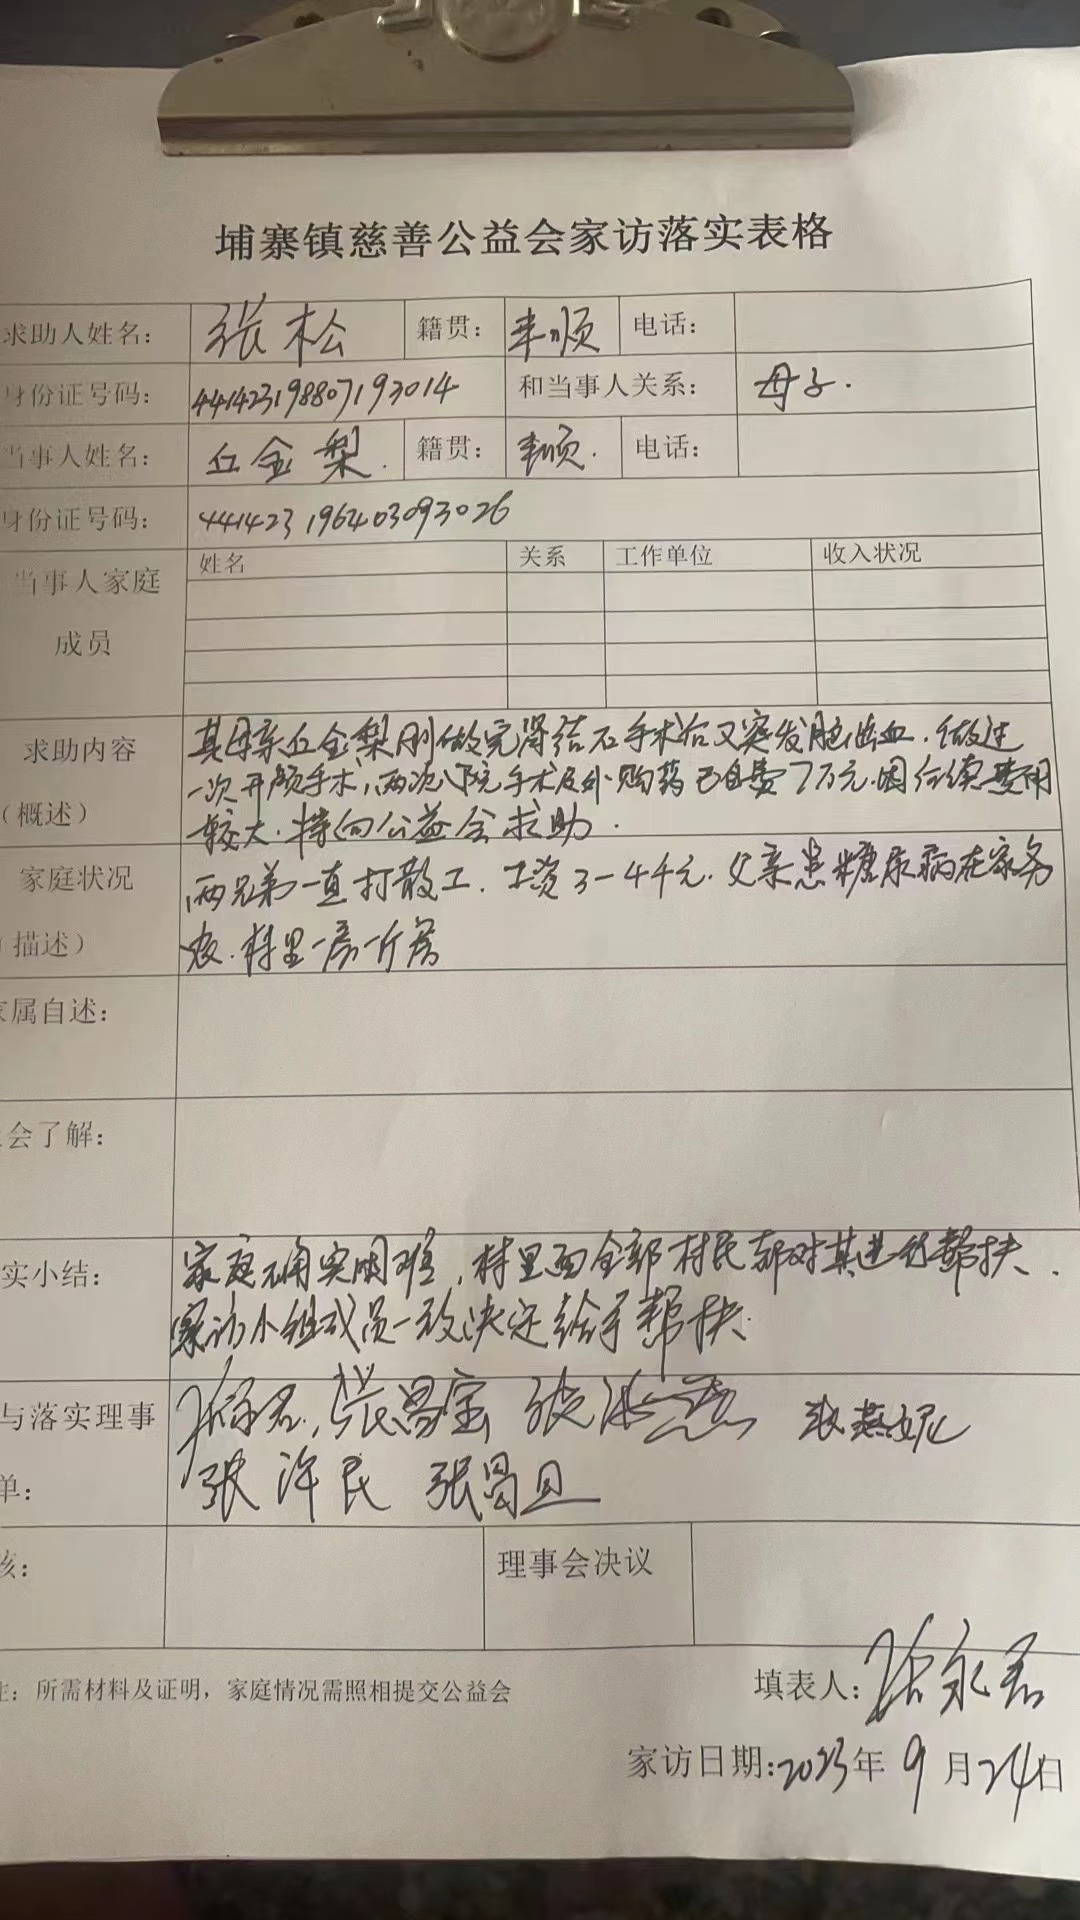 埔寨镇慈善公益会家访落实表格
求助人姓名： 张松 籍贯： 丰顺 电话：
身份证号码： 441423198807193014 和当事人关系： 母子.
当事人姓名： 丘金梨. 籍贯： 丰顺. 电话：
身份证号码： 441423196403093026
当事人家庭
成员
姓名 关系 工作单位 收入状况
求助内容
（概述）
其母亲丘金梨刚做完肾结石手术后又突发脑出血.做过
一次开颅手术,两次入院手术及外购药已自费7万元.因后续费用
较大.特向公益会求助.
家庭状况
（描述）
两兄弟一直打散工.工资3-4千元.父亲患糖尿病在家务
农.村里一房一厅房
属自述：
会了解：
实小结：
家庭确实困难,村里面全部村民都对其进行帮扶.
家访小组成员一致决定给予帮扶.
与落实理事
单：
张昌宝 张燕妮
张许民 张昌旦
核： 理事会决议
注：所需材料及证明，家庭情况需照相提交公益会
填表人: 永君
家访日期:2023年9月24日